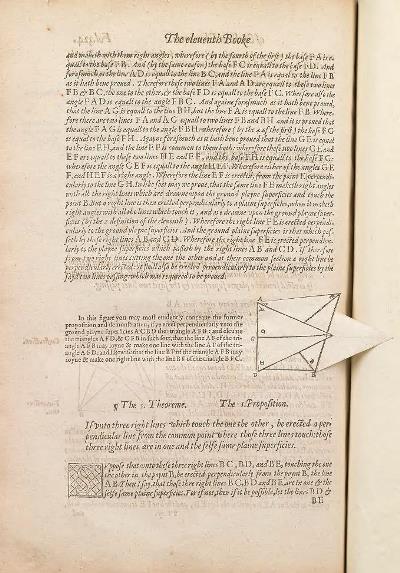 The eleuenth Booke
and maketh with them right angles, wherefore (by the fourth of the first) the base F A is e-
quall to the base F B. And (by the same reason) the base F C is equall to the base F D. And
forasmuch as the line A D is equall to the line B C, and the line F A is equall to the line F B
as it hath bene proued. Therefore these two lines F A and A D are equall to these two lines
F B & B C, the one to the other, & the base F D is equall to the base F C. Wherefore also the
angle F A D is equall to the angle F B C. And againe forasmuch as it hath bene proued,
that the line A G is equall to the line B H, but the line F A is equall to the line F B. Where-
fore there are two lines F A and A G equall to two lines F B and B H, and it is proued that
the angle F A G is equall to the angle F B H: wherefore (by the 4 of the first) the base F G
is equall to the base F H. Agayne forasmuch as it hath bene proued that the line G E is equall
to the line E H, and the line F E is common to them both: wherefore these two lines G E and
E F are equall to these two lines H E and E F, and the base F H is equall to the base F G:
wherefore the angle G E F is equall to the angle H E F. Wherefore either of the angles G E
F, and H E F is a right angle. Wherefore the line F E is erected from the point E perpendi-
cularly to the line G H. In like sort may we proue, that the same line F E maketh right angles
with all the right lines which are drawen vpon the ground playne superficies and touch the
point B. But a right line is then erected perpendicularly to a plaine superficies, when it maketh
right angles with all the lines which touch it, and are drawne vpon the ground playne super-
ficies (by the 2. definition of the eleuenth). Wherefore the right line F E is erected perpendi-
cularly to the ground playne superficies. And the ground plaine superficies is that which pas-
seth by these right lines A B and C D. Wherefore the right line F E is erected perpendicu-
larly to the plaine superficies which passeth by the right lines A B and C D. If therefore
from two right lines cutting the one the other and at their common section a right line be
perpendicularly erected: it shall also be erected perpendicularly to the plaine superficies by the
sayd two lines passing: which was required to be proued.
In this figure you may most euidently conceaue the former
proposition and demonstration, if ye erect perpendicularly vnto the
ground playne superficies A C B D the triangle A F B: and eleuate
the triangles A F D, & C F B in such sort, that the line A F of the tri-
angle A F B may ioyne & make one line with the line A F of the tri-
angle A F D: and likewise that the line B F of the triangle A F B may
ioyne & make one right line with the line B F of the triangle B F C.
¶ The 5. Theoreme. The 5. Proposition.
If vnto three right lines which touch the one the other, be erected a per-
pendicular line from the common point where those three lines touch: those
three right lines are in one and the selfe same plaine superficies.
Suppose that vnto these three right lines B C, B D, and B E, touching the one
the other in the poynt B, be erected perpendicularly from the poynt B, the line
A B. Then I say, that those thre right lines B C, B D and B E are in one & the
selfe same plaine superficies. For if not, then if it be possible, let the lines B D &
B E